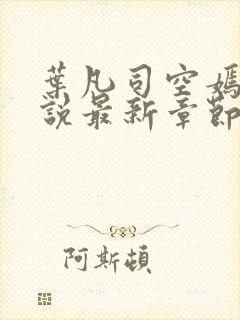 葉凡司空嫣
說最新章節
阿斯頓